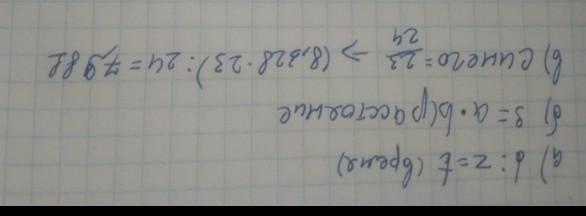 а) d : z = t (время)
б) 3 = a · b (расстояние
в) синего = 23/24 -> (8,328 · 23) : 24 = 7,981